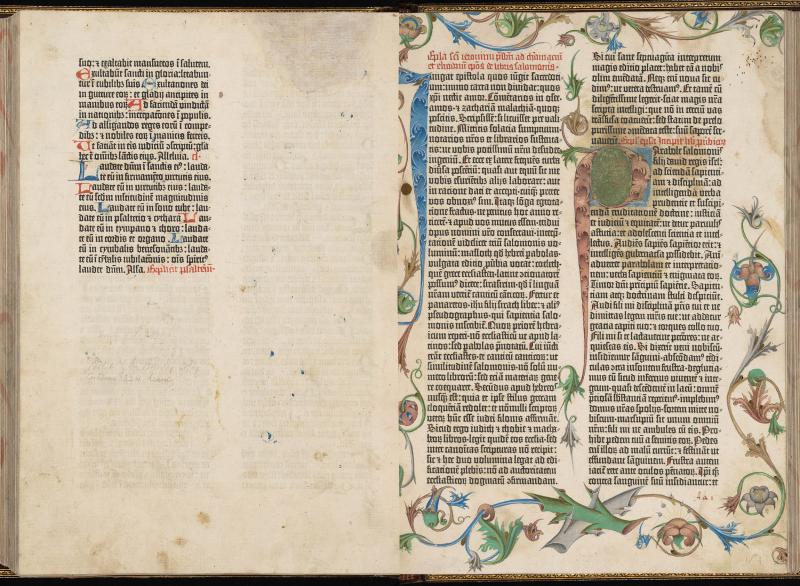 suo: et exaltabit mansuetos in salutem.
Exultabūt sancti in gloria: letabun-
tur in cubilibus suis. Exultationes dei
in gutture eorū: et gladij ancipites in
manibus eorū. Ad faciendā vindictā
in nationibus: increpationes in populis.
Ad alligandos reges eorū in compe-
dibus: et nobiles eorū in manicis ferreis.
Ut faciāt in eis iudiciū cōscriptū: glo-
ria hec ē omībus sāctis eius. Alleluia.
Laudate dūm in sanctis eius: lauda-
te eū in firmamēto virtutis eius.
Laudate eū in virtutibus eius: lauda-
te eū secdm multitudinē magnitudinis
eius. Laudate eū in sono tube: lau-
date eū in psalterio et cythara. Lau-
date eū in tympano et choro: lauda-
te eū in cordis et organo. Laudate
eū in cymbalis benesonātibus: lauda-
te eū ī cymbalis iubilationis: omīs spiritus
laudet dūm. Alleluia. Explicit psalteriū.
Epistola sancti iheronimi
de libris salomonis.
Iungat epistola quos iūgit sacerdo-
tium: immo carta non dividat: quos
xpī nectit amor. Cōmentarios in osee-
amos et zachariā malachiā-quoqz
poscitis. Scripsissē: si licuisset pre vali-
tudine. Mittitis solacia sumptuum-
notarios nr̄os et librarios sustenta-
tis: ut vobis potissimū nr̄m desudet
ingeniū. Et ecce ex latere frequēs turba
diversa poscētiū: quasi aut equū sit me
vobis esurietibus alijs laborare: aut
in ratione dati et accepti-cuiqz preter
vos obnoxi sim. Itaqz lōga egrota-
tione fractus-ne penitus hoc anno re-
ticerē et apud vos mutus essem-tridui
opus nomini vr̄o consecravi-interp̄-
tationē videlicet triū salomonis vo-
luminū: masloth qd hebrei parabolas-
vulgata editio pūbia vocat: coeleth-
quē grece ecclesiasten-latine cōcionatorē
possum dicere: sirasirim-qd in linguā
nr̄am vertit canticū cāticorū. Fertur et
panaretos-ihū filij sirach liber: et alius
pseudographus-qui sapientia salo-
monis inscribit̄. Quorū priorē hebra-
icum reperi-nō ecclesiasticū ut apud la-
tinos: sed parabolas p̄notatū. Cui iūcti
erāt ecclesiastes-et canticū canticorū: ut
similitudinē salomonis-nō solū nu-
mero librorū: sed etiā materiarū gene-
re coequaret. Secūdus apud hebreos
nusqz est: quia et ipse stilus grecam
eloquētiā redolet: et nōnulli scriptorū
veterū hūc esse iudei filonis affirmāt.
Sicut ergo iudith et thobie et macha-
beorū libros-legit quidē eos ecclesia-sed
inter canonicas scripturas nō recipit:
sic et hec duo volumina legat ad edi-
ficationē plebis: nō ad auctoritatem
ecclesiasticorū dogmatū cōfirmandam.
Si cui sane septuaginta interpretum
magis editio placet: habet eā a nobis
olim emēdatā. Neqz enī nova sic cu-
dimus: ut vetera destruamus. Et tamē cū
diligentissime legerit-sciat magis nr̄a
scripta intelligi: que nō in tertiū vas
trāsfusa coacuerīt: sed statim de prelo
purissime cōmēdata teste: suū saporē ser-
vaverīt. Explicit epistola Incipit liber pūbiorū
Parabole salomonis
filij david regis isrl:
ad sciendā sapienti-
am et disciplinā: ad
intelligenda verba
prudentie et suscipi-
endā eruditionē doctrine: iusticiā
et iudiciū et equitatē: ut detur parvulis
astutia: et adolescenti scientia et intel-
lectus. Audiēs sapiēs sapiētior erit: et
intelligēs gubernacla possidebit. Ani-
advertet parabolam et interpretatio-
nem: verba sapientiū et enigmata eorū.
Timor dūi principiū sapiētie. Sapien-
tiam atqz doctrinam stulti despiciūt.
Audi fili mi disciplinā pr̄is tui et ne
dimittas legem mr̄is tue: ut addatur
gracia capiti tuo: et torques collo tuo.
Fili mi si te lactaverint peccatores: ne ac-
quiescas eis. Si dixerīt veni nobiscū-
insidiemur sāguini-abscōdamus tēdi-
culas cōtra insontem frustra-deglucia-
mus eū sicud infernus viventē et inte-
grum-quasi descēdentē in lacū: omnē
preciosā substātiā reperiemus-implebimus
domus nr̄as spolijs-sortem mitte no-
biscum-marsupiū sit unum omniū
nr̄m: fili mi ne ambules cū eis. Pro-
hibe pedem tuū a semitis eorū. Pedes
enī illorū ad malū currūt: et festināt ut
effundant sāguinem. Frustra autem
iacit̄ rete ante oculos pēnatorū. Ipi qz
contra sanguinē suū insidiantur: et